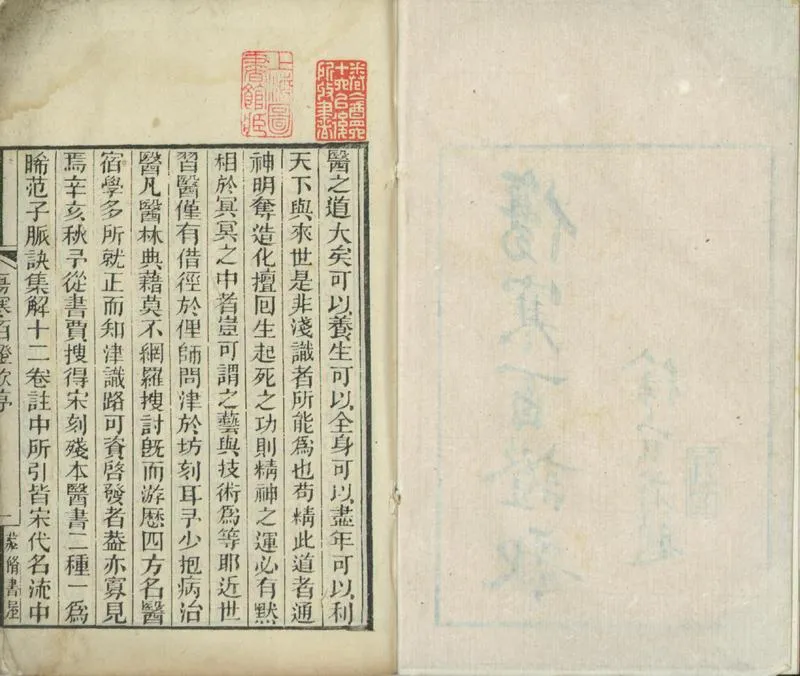 醫之道大矣可以養生可以全身可以盡年可以利
天下與來世是非淺識者所能爲也苟精此道者通
神明奪造化擅回生起死之功則精神之運必有默
相於冥冥之中者豈可謂之藝與技術爲等耶近世
習醫僅有借徑於俚師問津於坊刻耳予少抱病治
醫凡醫林典藉莫不網羅搜討旣而游歷四方名醫
宿學多所就正而知津識路可資啓發者葢亦寡見
焉辛亥秋予從書賈搜得宋刻殘本醫書二種一爲
晞范子脈訣集解十二卷註中所引皆宋代名流中
傷寒百證歌序
一
書屋
上海圖
書館
傷寒百證歌